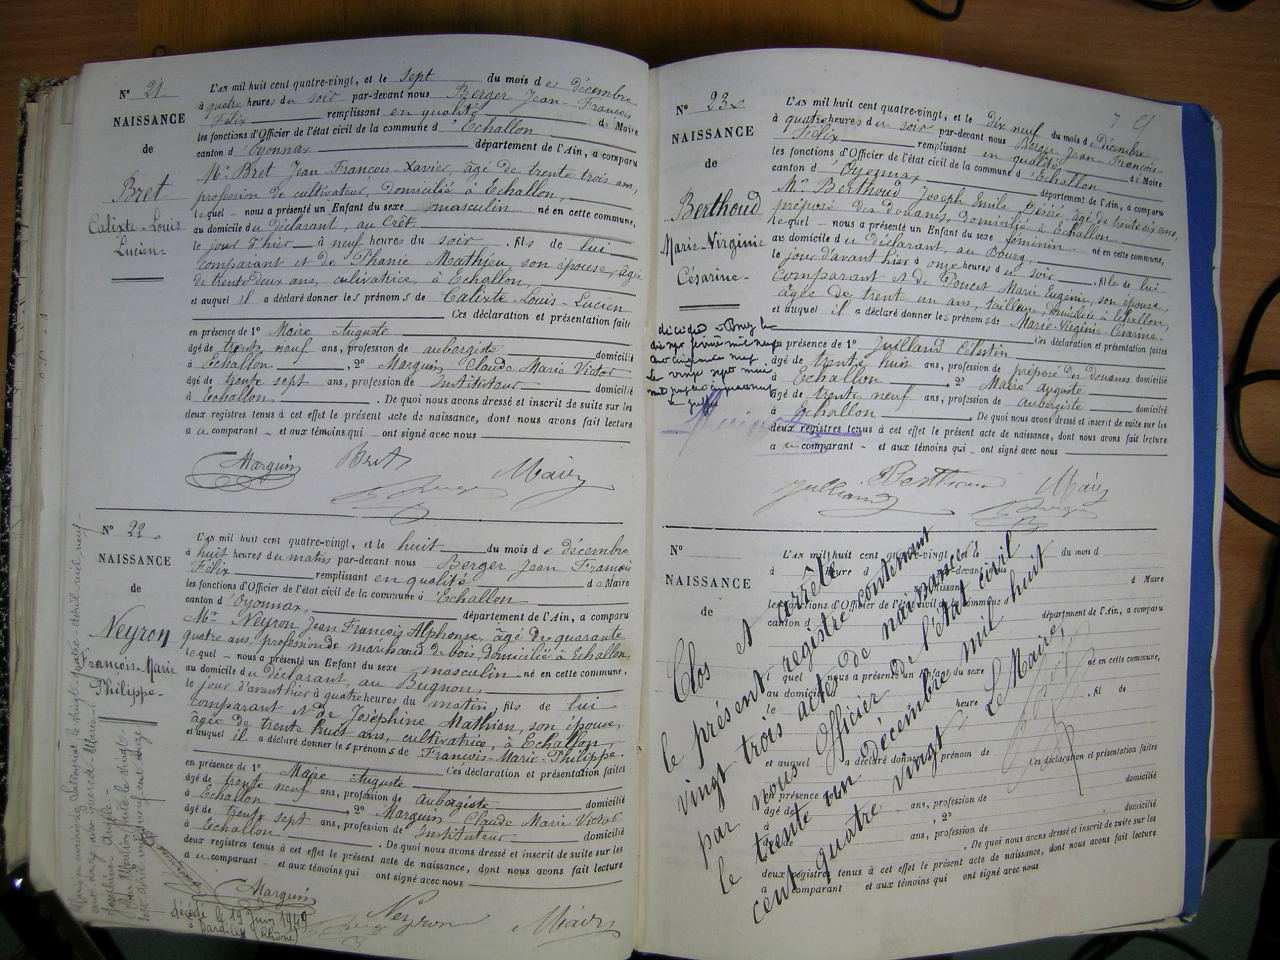 N° 21
NAISSANCE
de
Bret
Calixte-Louis
Lucien
L'AN mil huit cent quatre-vingt, et le sept du mois de décembre
à quatre heures du soir par-devant nous Berger Jean-François
Félix remplissant en qualité de Maire
les fonctions d'Officier de l'état civil de la commune d'Echallon
canton d'Oyonnax département de l'Ain, a comparu
Mr Bret Jean François Xavier, âgé de trente trois ans,
profession de cultivateur, domicilié à Echallon,
lequel nous a présenté un Enfant du sexe masculin né en cette commune,
au domicile du déclarant, au Crêt,
le jour d'hier à neuf heures du soir, fils de lui
comparant et de Phanie Mathieu, son épouse, âgée
de trente deux ans, cultivatrice, à Echallon,
et auquel il a déclaré donner les prénoms de Calixte-Louis-Lucien
Ces déclaration et présentation faites
en présence de 1° Maire Auguste
âgé de trente neuf ans, profession de aubergiste domicilié
à Echallon, 2° Marquin Claude Marie Victor
âgé de trente sept ans, profession de Instituteur domicilié
à Echallon. De quoi nous avons dressé et inscrit de suite sur les
deux registres tenus à cet effet le présent acte de naissance, dont nous avons fait lecture
au comparant et aux témoins qui ont signé avec nous
Marquin Bret Maire
N° 22
NAISSANCE
de
Neyron
François-Marie
Philippe
L'AN mil huit cent quatre-vingt, et le huit du mois de décembre
à huit heures du matin par-devant nous Berger Jean François
Félix remplissant en qualité de Maire
les fonctions d'Officier de l'état civil de la commune d'Echallon
canton d'Oyonnax, département de l'Ain, a comparu
Mr Neyron Jean François Alphonse, âgé de quarante
quatre ans, profession de marchand de bois, domicilié à Echallon
lequel nous a présenté un Enfant du sexe masculin né en cette commune,
au domicile du déclarant, au Bugnon,
le jour d'avant hier à quatre heures du matin, fils de lui
comparant et de Joséphine Mathieu, son épouse,
âgée de trente huit ans, cultivatrice, à Echallon,
et auquel il a déclaré donner les prénoms de François-Marie-Philippe
Ces déclaration et présentation faites
en présence de 1° Maire Auguste
âgé de trente neuf ans, profession de Aubergiste domicilié
à Echallon 2° Marquin Claude Marie Victor
âgé de trente sept ans, profession de Instituteur domicilié
à Echallon. De quoi nous avons dressé et inscrit de suite sur les
deux registres tenus à cet effet le présent acte de naissance, dont nous avons fait lecture
au comparant et aux témoins qui ont signé avec nous
Marquin
Neyron Maire
décédé le 19 Juin 1949
à Dardilly (Rhône)
N° 23
NAISSANCE
de
Berthoud
Marie-Virginie
Césarine
L'AN mil huit cent quatre-vingt, et le dix neuf du mois de décembre
à quatre heures du soir par-devant nous Berger Jean-François
Félix remplissant en qualité de Maire
les fonctions d'Officier de l'état civil de la commune d'Echallon
canton d'Oyonnax département de l'Ain, a comparu
Mr Berthoud Joseph Emile, âgé de trente six ans,
préposé des douanes, domicilié à Echallon
lequel nous a présenté un Enfant du sexe féminin né en cette commune,
au domicile du déclarant, au Bourg,
le jour d'avant hier à onze heures du soir, fille de lui
comparant et de Poncet Marie Eugénie, son épouse,
âgée de trent un ans, tailleuse, domiciliée à Echallon,
et auquel il a déclaré donner les prénoms de Marie-Virginie Césarine
Ces déclaration et présentation faites
en présence de 1° Julliand Célestin
âgé de trente huit ans, profession de préposé des douanes domicilié
à Echallon 2° Maire Auguste
âgé de trente neuf ans, profession de aubergiste domicilié
à Echallon. De quoi nous avons dressé et inscrit de suite sur les
deux registres tenus à cet effet le présent acte de naissance, dont nous avons fait lecture
au comparant et aux témoins qui ont signé avec nous
Julliand Berthoud Maire
N°
NAISSANCE
de
L'AN mil huit cent quatre-vingt et le du mois d
à heure d par-devant nous
d Maire
les fonctions d'Officier de l'état civil de la commune d
canton d département de l'Ain, a comparu
lequel nous a présenté un Enfant du sexe né en cette commune,
au domicile
le heure , fil de
et auquel a déclaré donner prénom de
Ces déclaration et présentation faites
en présence de 1°
âgé de ans, profession de domicilié
à , 2°
âgé de ans, profession de domicilié
à . De quoi nous avons dressé et inscrit de suite sur les
deux registres tenus à cet effet le présent acte de naissance, dont nous avons fait lecture
a comparant et aux témoins qui ont signé avec nous
Clos et arrêté
le présent registre contenant
vingt trois actes de naissance
par nous Officier de l'état civil
le trente un décembre mil huit
cent quatre vingt
Le Maire,